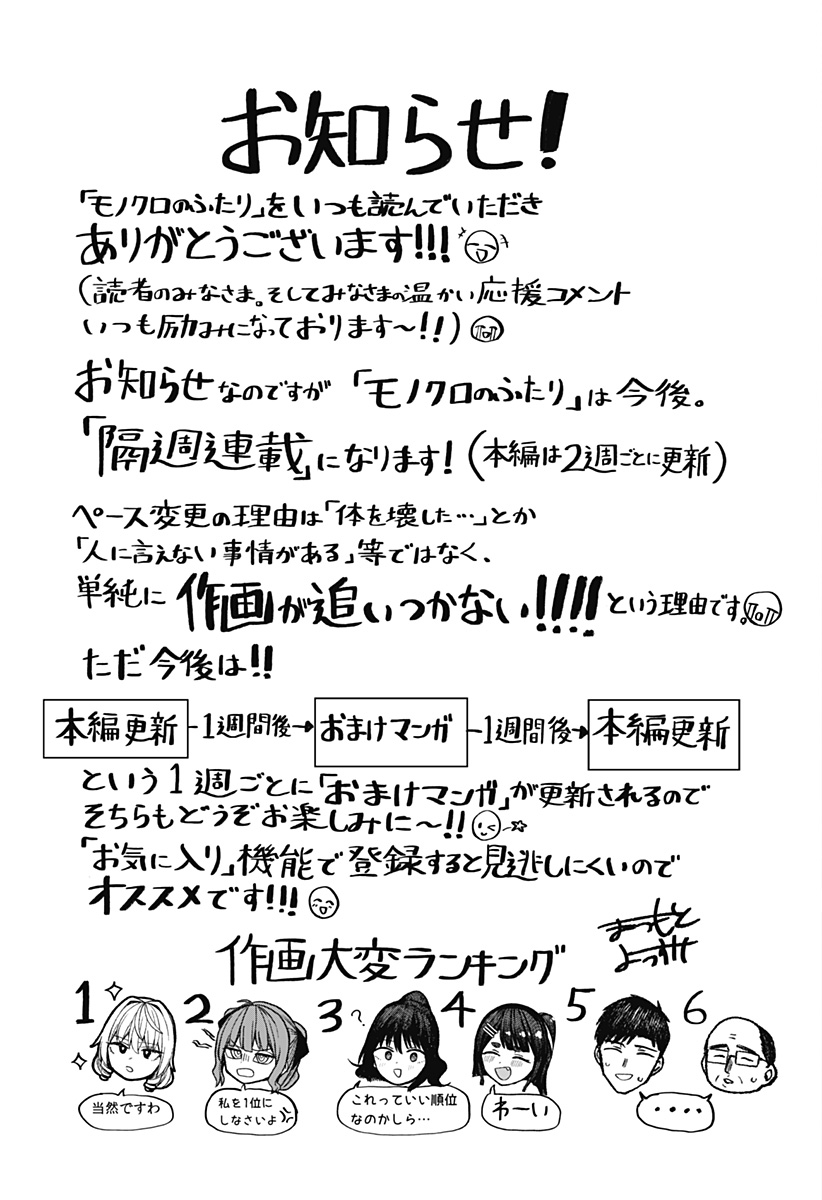 お知らせ!
「モノクロのふたり」をいつも読んでいただき
ありがとうございます!!!
(読者のみなさま。そしてみなさまの温かい応援コメント
いつも励みになっております~!!)
お知らせなのですが「モノクロのふたり」は今後。
「隔週連載」になります!(本編は2週ごとに更新)
ペース変更の理由は「体を壊した…」とか
「人に言えない事情がある」等ではなく、
単純に作画が追いつかない!!!!という理由です。
ただ今後は!!
本編更新 1週間後→ おまけマンガ 1週間後→ 本編更新
という1週ごとに「おまけマンガ」が更新されるので
そちらもどうぞお楽しみに~!!
「お気に入り」機能で登録すると見逃しにくいので
オススメです!!!
作画大変ランキング
1 2 3 4 5 6
?
当然ですわ
私を1位に
しなさいよ
これっていい順位
なのかしら…
わーい
・・・・